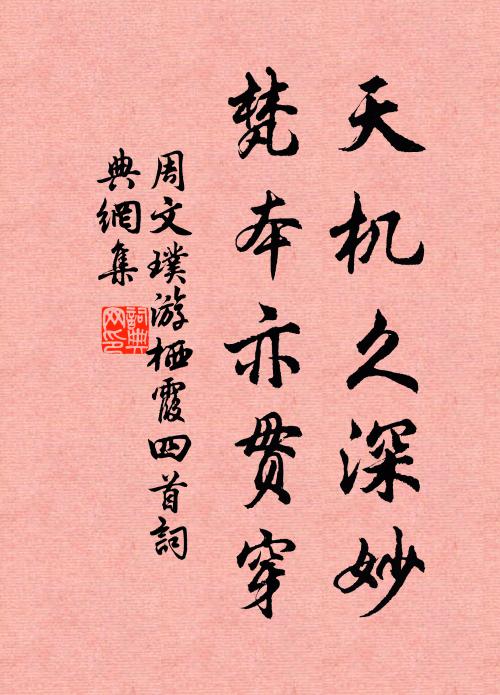 天机久深妙
梵本亦贯穿
周文璞游栖霞四首詞
典網集
詞典网印